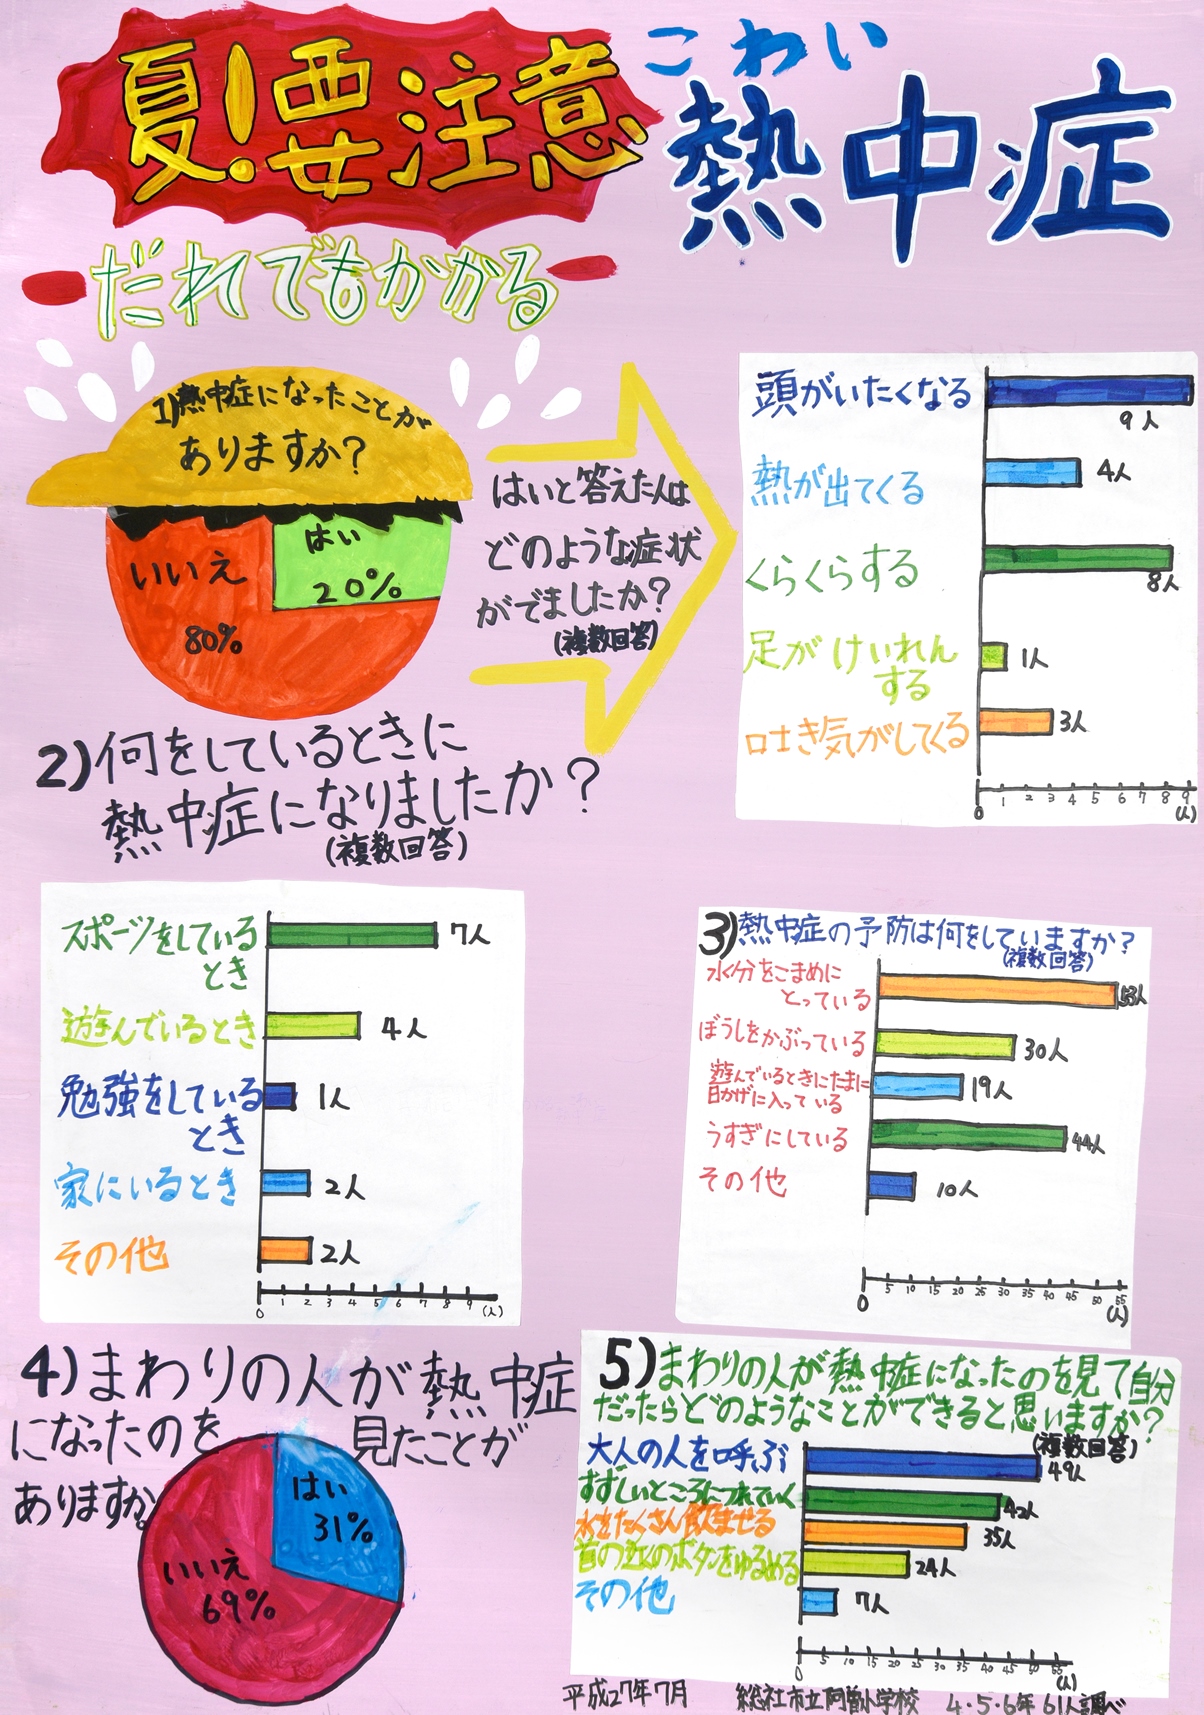 夏!要注意
こわい
熱中症
だれでもかかる
1)熱中症になったことが
ありますか?
はい
20%
いいえ
80%
はいと答えた人は
どのような症状
がでましたか?
(複数回答)
頭がいたくなる
9人
熱が出てくる
4人
くらくらする
8人
足がけいれん
する
1人
吐き気がしてくる
3人
0 1 2 3 4 5 6 7 8 9
(人)
2)何をしているときに
熱中症になりましたか?
(複数回答)
スポーツをしている
とき
7人
遊んでいるとき
4人
勉強をしている
とき
1人
家にいるとき
2人
その他
2人
0 1 2 3 4 5 6 7 8 9 (人)
3)熱中症の予防は何をしていますか?
(複数回答)
水分をこまめに
とっている
53人
ぼうしをかぶっている
30人
遊んでいるときにたまに
日かげに入っている
19人
うすぎにしている
44人
その他
10人
0 5 10 15 20 25 30 35 40 45 50 55
(人)
4)まわりの人が熱中症
になったのを見たことが
ありますか。
はい
31%
いいえ
69%
5)まわりの人が熱中症になったのを見て自分
だったらどのようなことができると思いますか?
(複数回答)
大人の人を呼ぶ
49人
すずしいところにつれていく
42人
水をたくさん飲ませる
35人
首の近くのボタンをゆるめる
24人
その他
7人
0 5 10 15 20 25 30 35 40 45 50 55
(人)
平成27年7月 総社市立阿曽小学校 4・5・6年 61人調べ